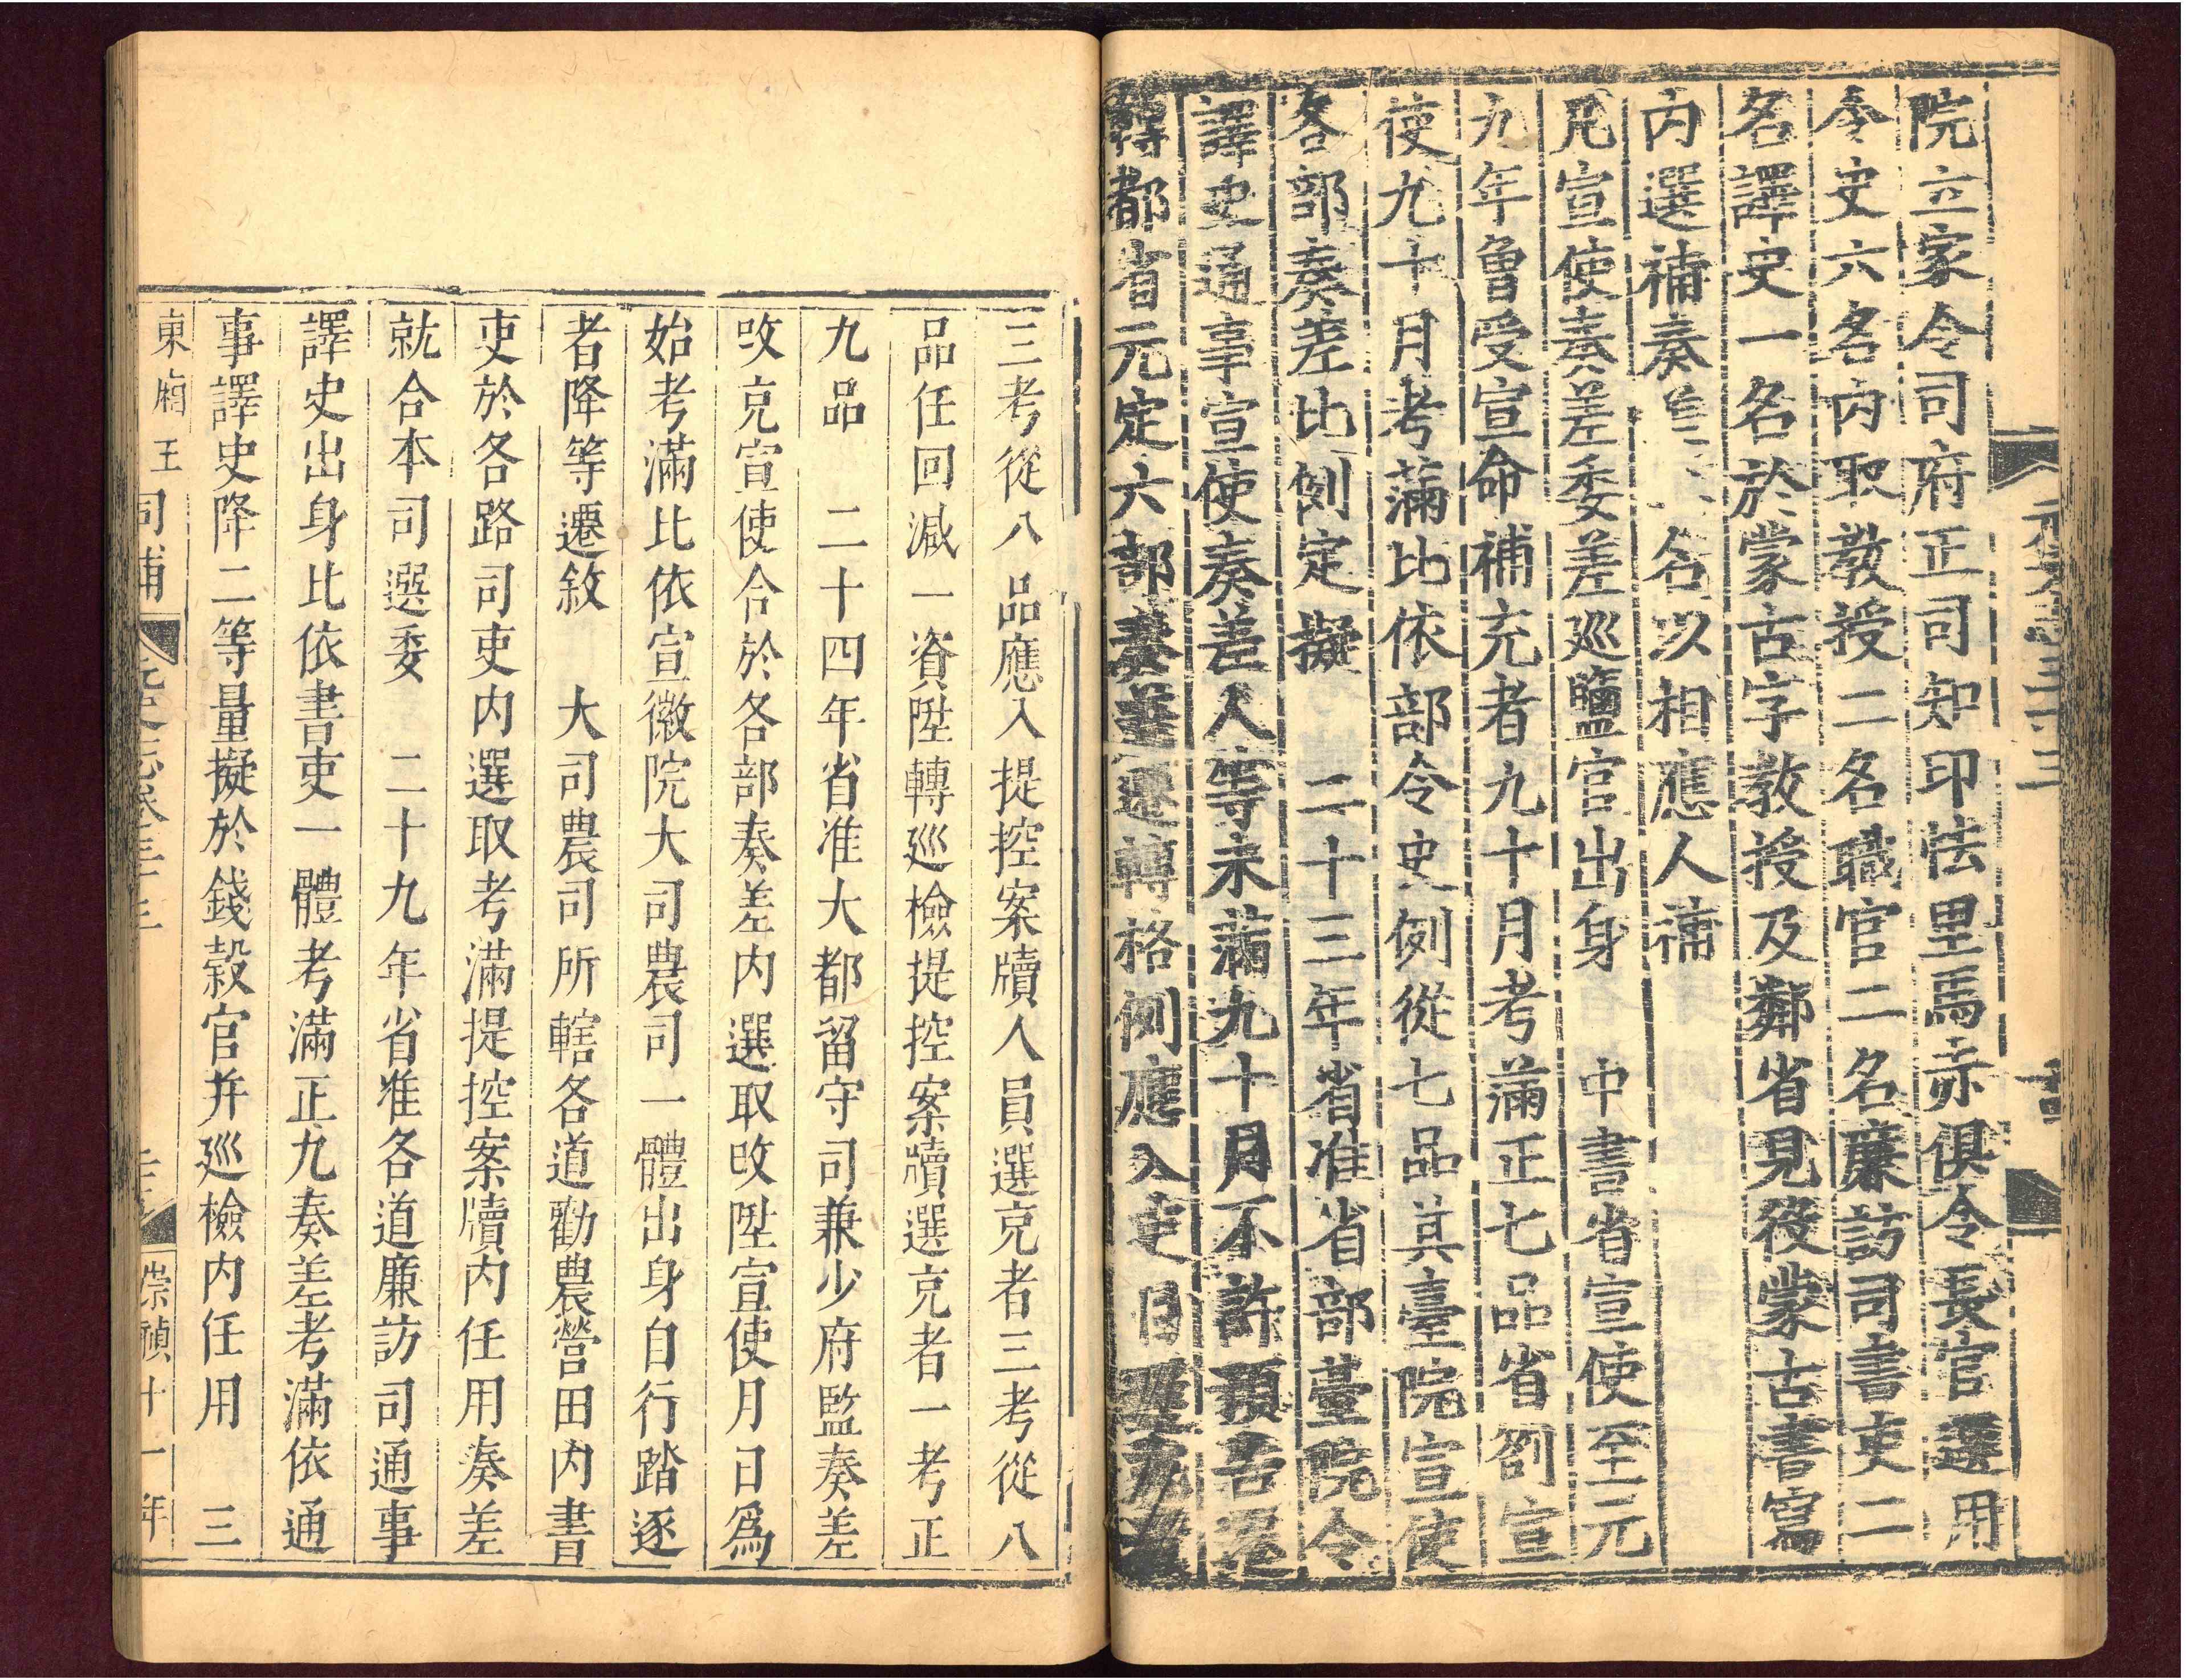 院立家令司府正司知印怯里馬赤俱令長官選用
令史六名内取教授二名職官二名廉訪司書吏二
名譯史一名於蒙古字教授及鄰省見役蒙古書寫
内選補奏差 名以相應人補
凡宣使奏差委差巡鹽官出身 中書省宣使至元
九年曾受宣命補充者九十月考滿正七品省劄宣
使九十月考滿比依部令史例從七品其臺院宣使
各部奏差比例定擬 二十三年省准省部臺院令
譯史通事宣使奏差人等未滿九十月不許預告遷
轉都省元定六部奏差遷轉格例應入吏目
三考從八品應入提控案牘人員選充者三考從八
品任回減一資陞轉巡檢提控案牘選充者一考正
九品 二十四年省准大都留守司兼少府監奏差
改充宣使合於各部奏差内選取改陞宣使月日爲
始考滿比依宣徽院大司農司一體出身自行踏逐
者降等遷敘 大司農司所轄各道勸農營田内書
吏於各路司吏内選取考滿提控案牘内任用奏差
就合本司選委 二十九年省准各道廉訪司通事
譯史出身比依書吏一體考滿正九奏差考滿依通
事譯史降二等量擬於錢穀官并巡檢内任用 三
東廂王司補
崇禎十一年